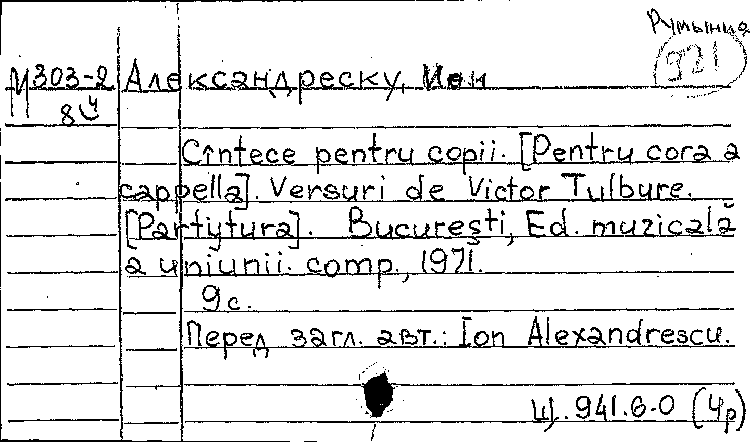 Румыния
921
М303-2 Александреску, Ион
8
Cîntece pentru copii. [Pentru cora a
cappella]. Versuri de Victor Tulbure.
[Partytura]. București, Ed. muzicală
a uniunii. comp., 1971.
9с.
Перед загл. авт.: Ion Alexandrescu.
Ц. 941.6-0 (4р)